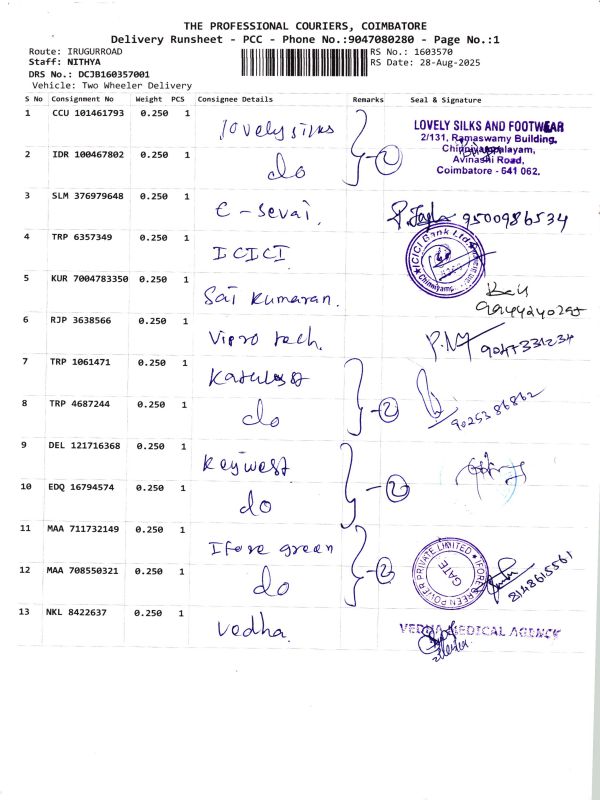 THE PROFESSIONAL COURIERS, COIMBATORE
Delivery Runsheet - PCC - Phone No.:9047080280 - Page No.:1
Route: IRUGURROAD
RS No.: 1603570
Staff: NITHYA
RS Date: 28-Aug-2025
DRS No.: DCJB160357001
Vehicle: Two Wheeler Delivery
S No Consignment No Weight PCS Consignee Details Remarks Seal & Signature
1 CCU 101461793 0.250 1 lovely silks
LOVELY SILKS AND FOOTWEAR
2/131, Ramaswamy Building,
Chinniyampalayam,
Avinashi Road,
Coimbatore - 641 062.
2 IDR 100467802 0.250 1 do 2
3 SLM 376979648 0.250 1 E-Sevai. 9500986534
4 TRP 6357349 0.250 1 ICICI
ICICI Bank Ltd
5 KUR 7004783350 0.250 1 Sai Kumaran.
6 RJP 3638566 0.250 1 Vipro tech. 9047331234
7 TRP 1061471 0.250 1
8 TRP 4687244 0.250 1 do 2 9025386862
9 DEL 121716368 0.250 1 Keywest
10 EDQ 16794574 0.250 1 do 2
11 MAA 711732149 0.250 1 Ifore green
IFORE GREEN POWER PRIVATE LIMITED
GATE
12 MAA 708550321 0.250 1 do 2 8148615561
13 NKL 8422637 0.250 1 Vedha.
VEDHA MEDICAL AGENCY